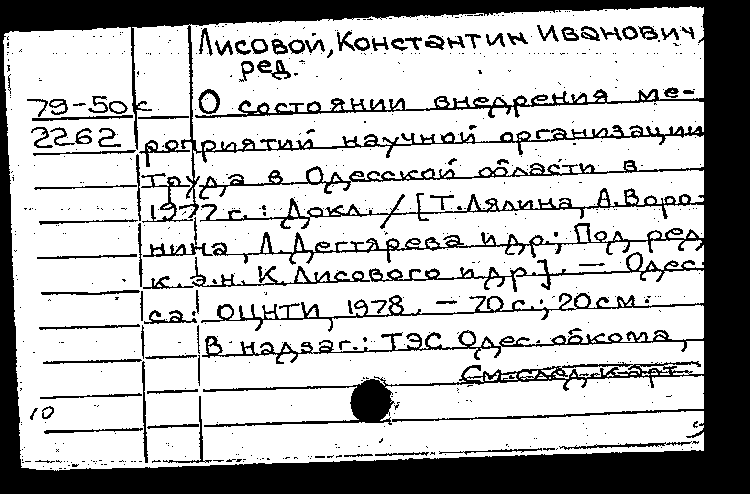 Лисовой, Константин Иванович,
ред.
79-50к О состоянии внедрения ме-
2262 роприятий научной организации
труда в Одесской области в
1977 г. : Докл. / [Т. Лялина, А. Воро-
нина, Л. Дегтярева и др.; Под ред.
к. э. н. К. Лисового и др.]. — Одес-
са: ОЦНТИ, 1978. — 70 с.; 20 см.
В надзаг.: ТЭС Одес. обкома,
См. след. карт.
10